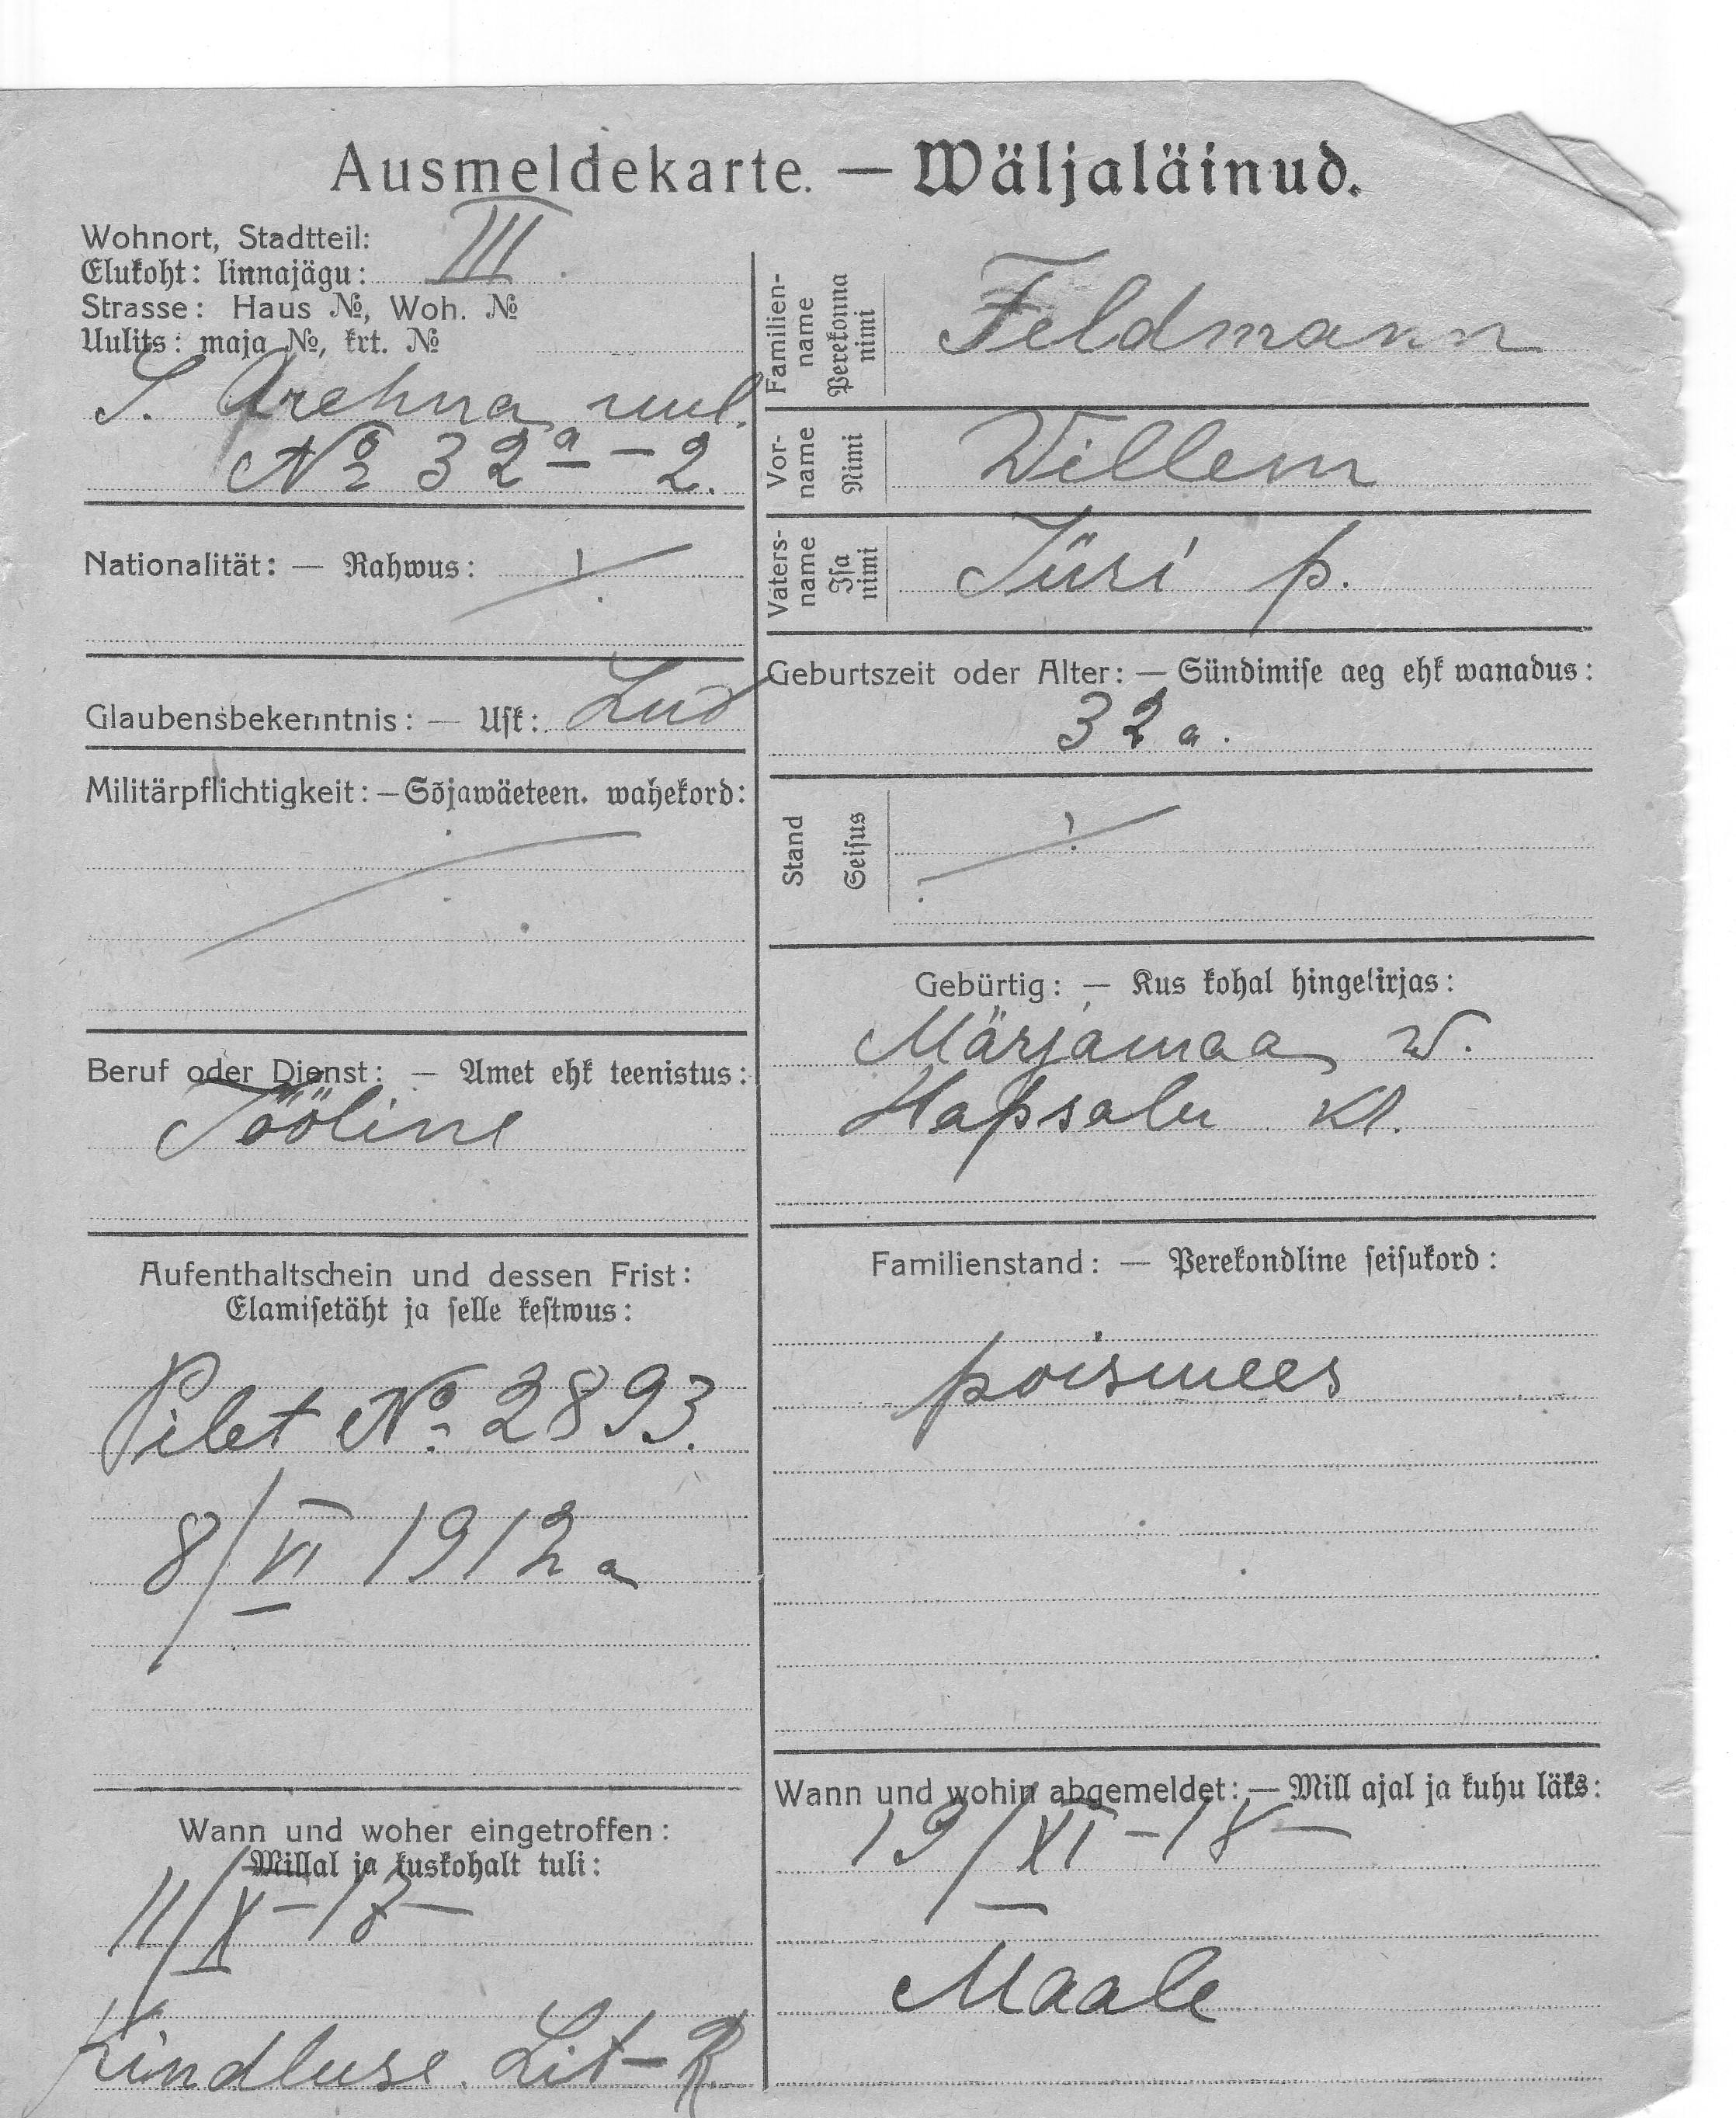 Ausmeldekarte. — Wäljaläinud.
Wohnort, Stadtteil:
Elukoht: linnajägu: III.
Strasse: Haus №, Woh. №
Uulits: maja №, krt. №
S. uul.
№ 32ª – 2.
Nationalität: — Rahwus:
Glaubensbekenntnis: — Usk: Lud
Militärpflichtigkeit: — Sõjawäeteen. wahekord:
Beruf oder Dienst: — Amet ehk teenistus:
Tööline
Aufenthaltschein und dessen Frist:
Elamisetäht ja selle kestwus:
Pilet № 2893.
8/VI 1912 a
Wann und woher eingetroffen:
Millal ja kuskohalt tuli:
11/X – 18 –
Kindluse Lit – R.
Familien-
name
Perekonna
nimi
Feldmann
Vor-
name
Nimi
Willem
Vaters-
name
Isa
nimi
Jüri p.
Geburtszeit oder Alter: — Sündimise aeg ehk wanadus:
32 a.
Stand
Seisus
Gebürtig: — Kus kohal hingekirjas:
Märjamaa w.
Hapsalu kr.
Familienstand: — Perekondline seisukord:
poismees
Wann und wohin abgemeldet: — Mill ajal ja kuhu läks:
19/XI – 18 –
Maale